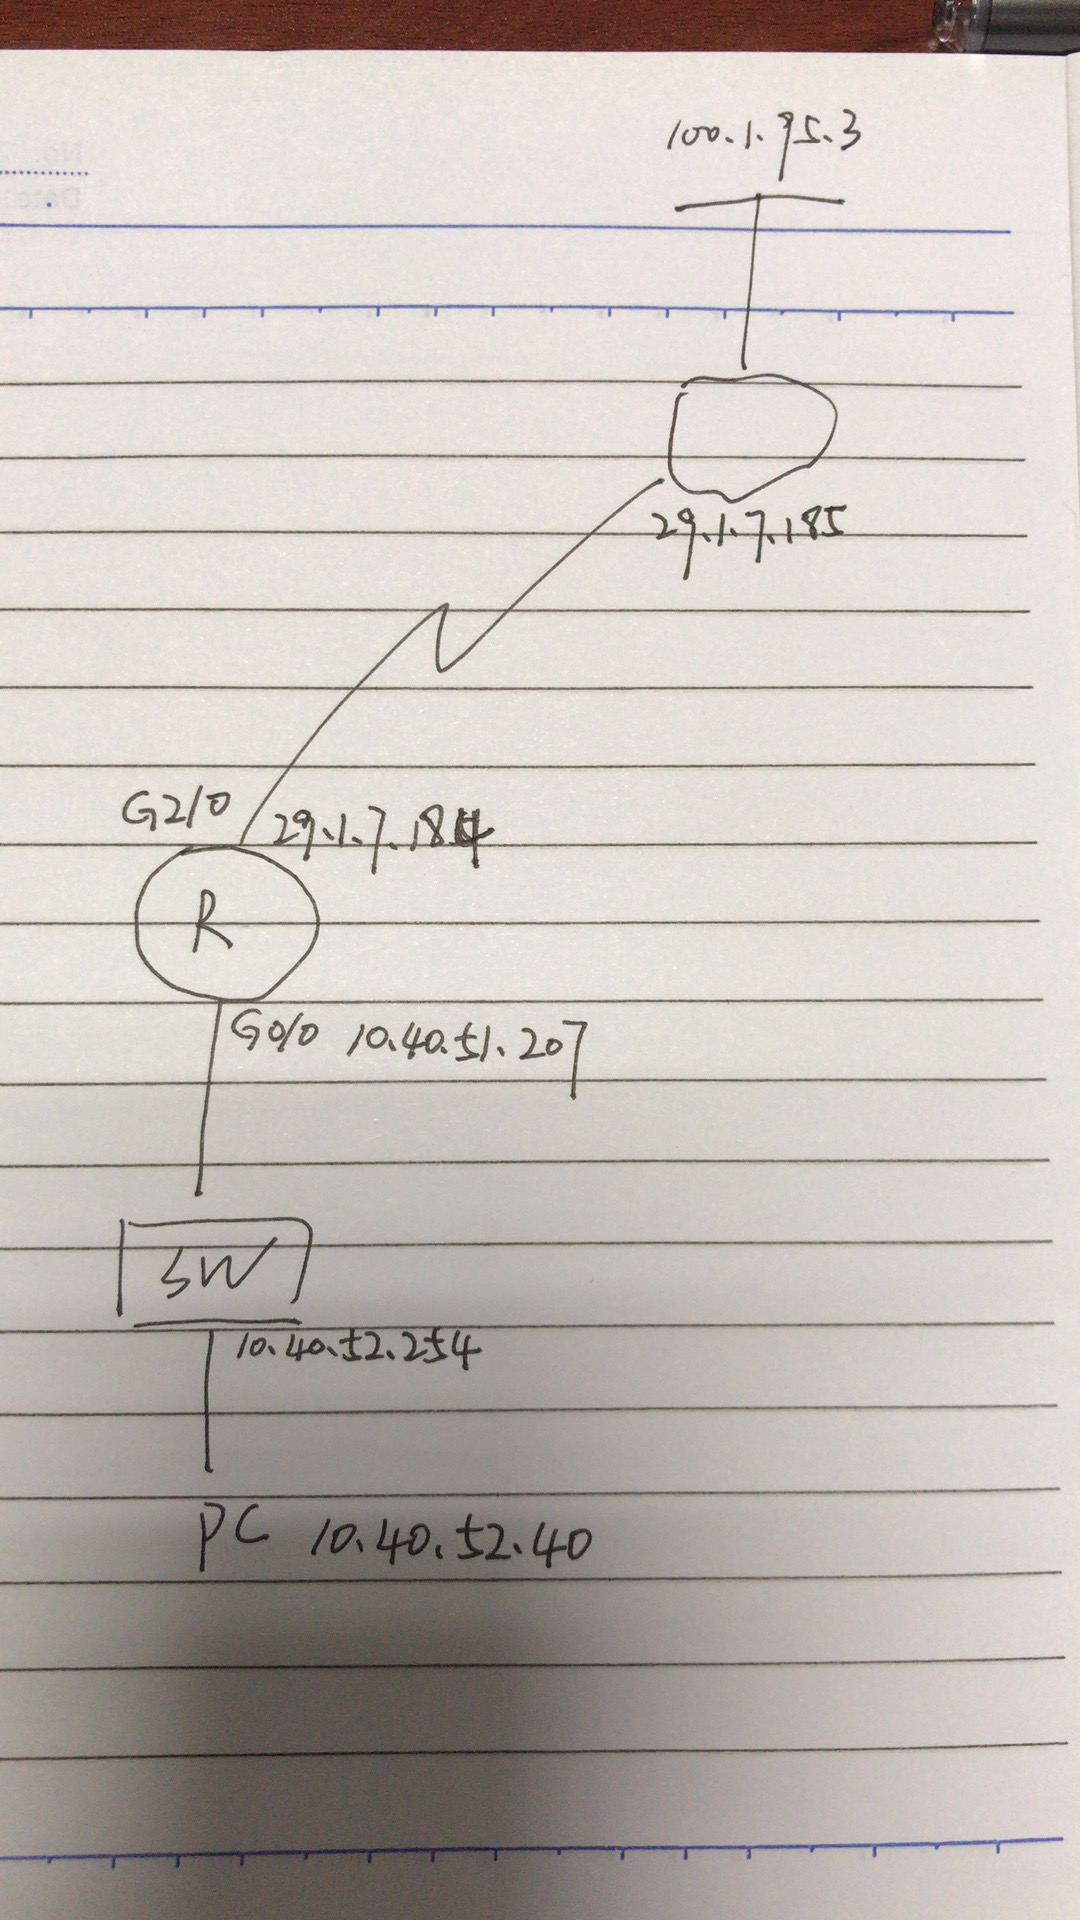 100.1.95.3
29.1.7.185
G2/0
29.1.7.184
R
G0/0 10.40.51.207
SW
10.40.52.254
PC 10.40.52.40